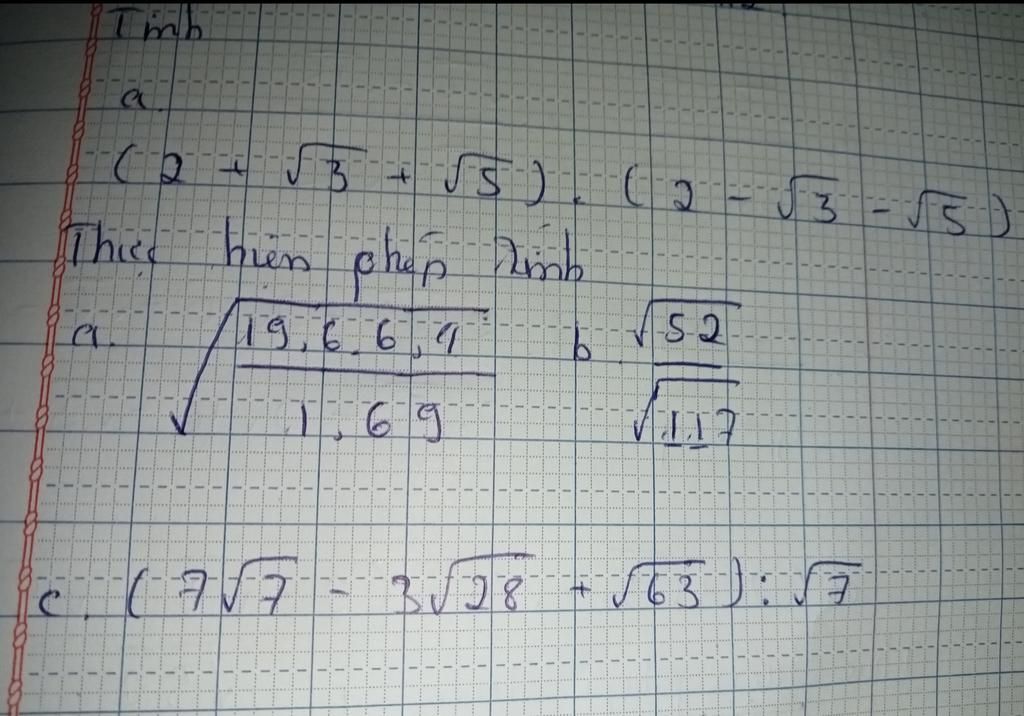 Tính
a.
(2 + √3 + √5) . (2 - √3 - √5)
Thực hiện phép tính
a. √(19,6.6,9 / 1,69) b. √52 / √117
c. (7√7 - 3√28 + √63) : √7